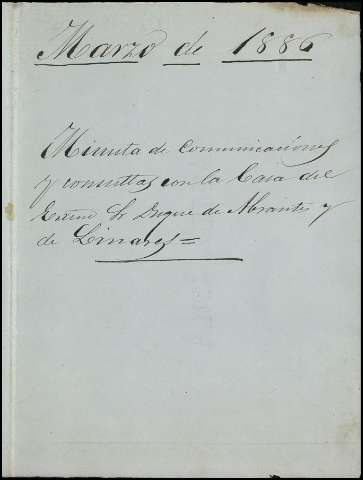 Marzo de 1886
Minuta de Comunicaciones
y consultas con la Casa del
Excmo Sr Duque de Abrantes y
de Linares=